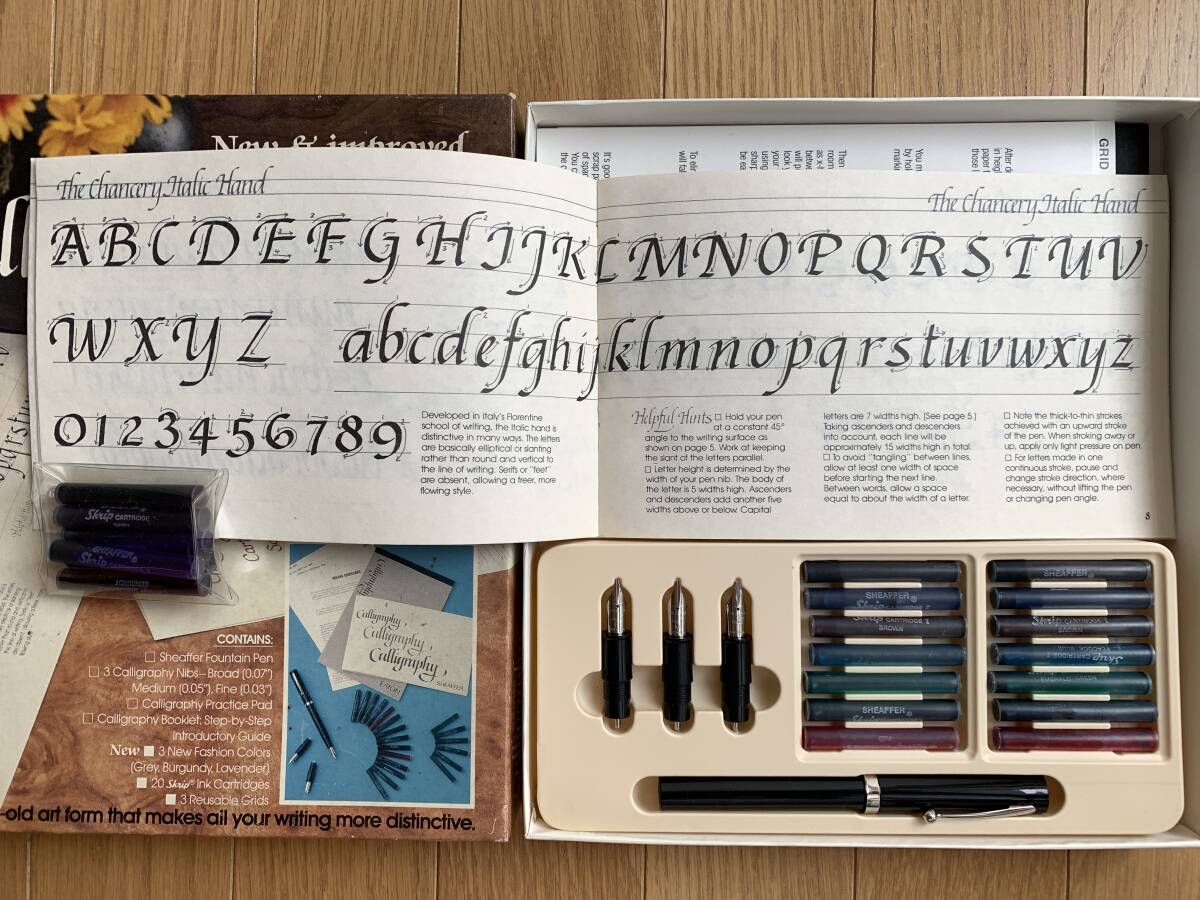 New & improved
The Chancery Italic Hand
The Chancery Italic Hand
A B C D E F G H I J K L M N O P Q R S T U V
W X Y Z
a b c d e f g h i j k l m n o p q r s t u v w x y z
0 1 2 3 4 5 6 7 8 9
Developed in Italy's Florentine
school of writing, the Italic hand is
distinctive in many ways. The letters
are basically elliptical or slanting
rather than round and vertical to
the line of writing. Serifs or "feet"
are absent, allowing a freer, more
flowing style.
Helpful Hints □ Hold your pen
at a constant 45°
angle to the writing surface as
shown on page 5. Work at keeping
the slant of the letters parallel.
□ Letter height is determined by the
width of your pen nib. The body of
the letter is 5 widths high. Ascenders
and descenders add another five
widths above or below. Capital
letters are 7 widths high. (See page 5.)
Taking ascenders and descenders
into account, each line will be
approximately 15 widths high in total.
□ To avoid "tangling" between lines,
allow at least one width of space
before starting the next line.
Between words, allow a space
equal to about the width of a letter.
□ Note the thick-to-thin strokes
achieved with an upward stroke
of the pen. When stroking away or
up, apply only light pressure on pen.
□ For letters made in one
continuous stroke, pause and
change stroke direction, where
necessary, without lifting the pen
or changing pen angle.
GRID
Skrip CARTRIDGE
SHEAFFER
Skrip
CONTAINS:
□ Sheaffer Fountain Pen
□ 3 Calligraphy Nibs—Broad (0.07")
Medium (0.05"), Fine (0.03")
□ Calligraphy Practice Pad
□ Calligraphy Booklet: Step-by-Step
Introductory Guide
New ■ 3 New Fashion Colors
(Grey, Burgundy, Lavender)
■ 20 Skrip® Ink Cartridges
■ 3 Reusable Grids
-old art form that makes all your writing more distinctive.
Calligraphy
Calligraphy
Calligraphy
Calligraphy
EATON
SHEAFFER
SHEAFFER
SHEAFFER®
Skrip CARTRIDGE
BROWN
Skrip CARTRIDGE
BROWN
Skrip CARTRIDGE
SHEAFFER®